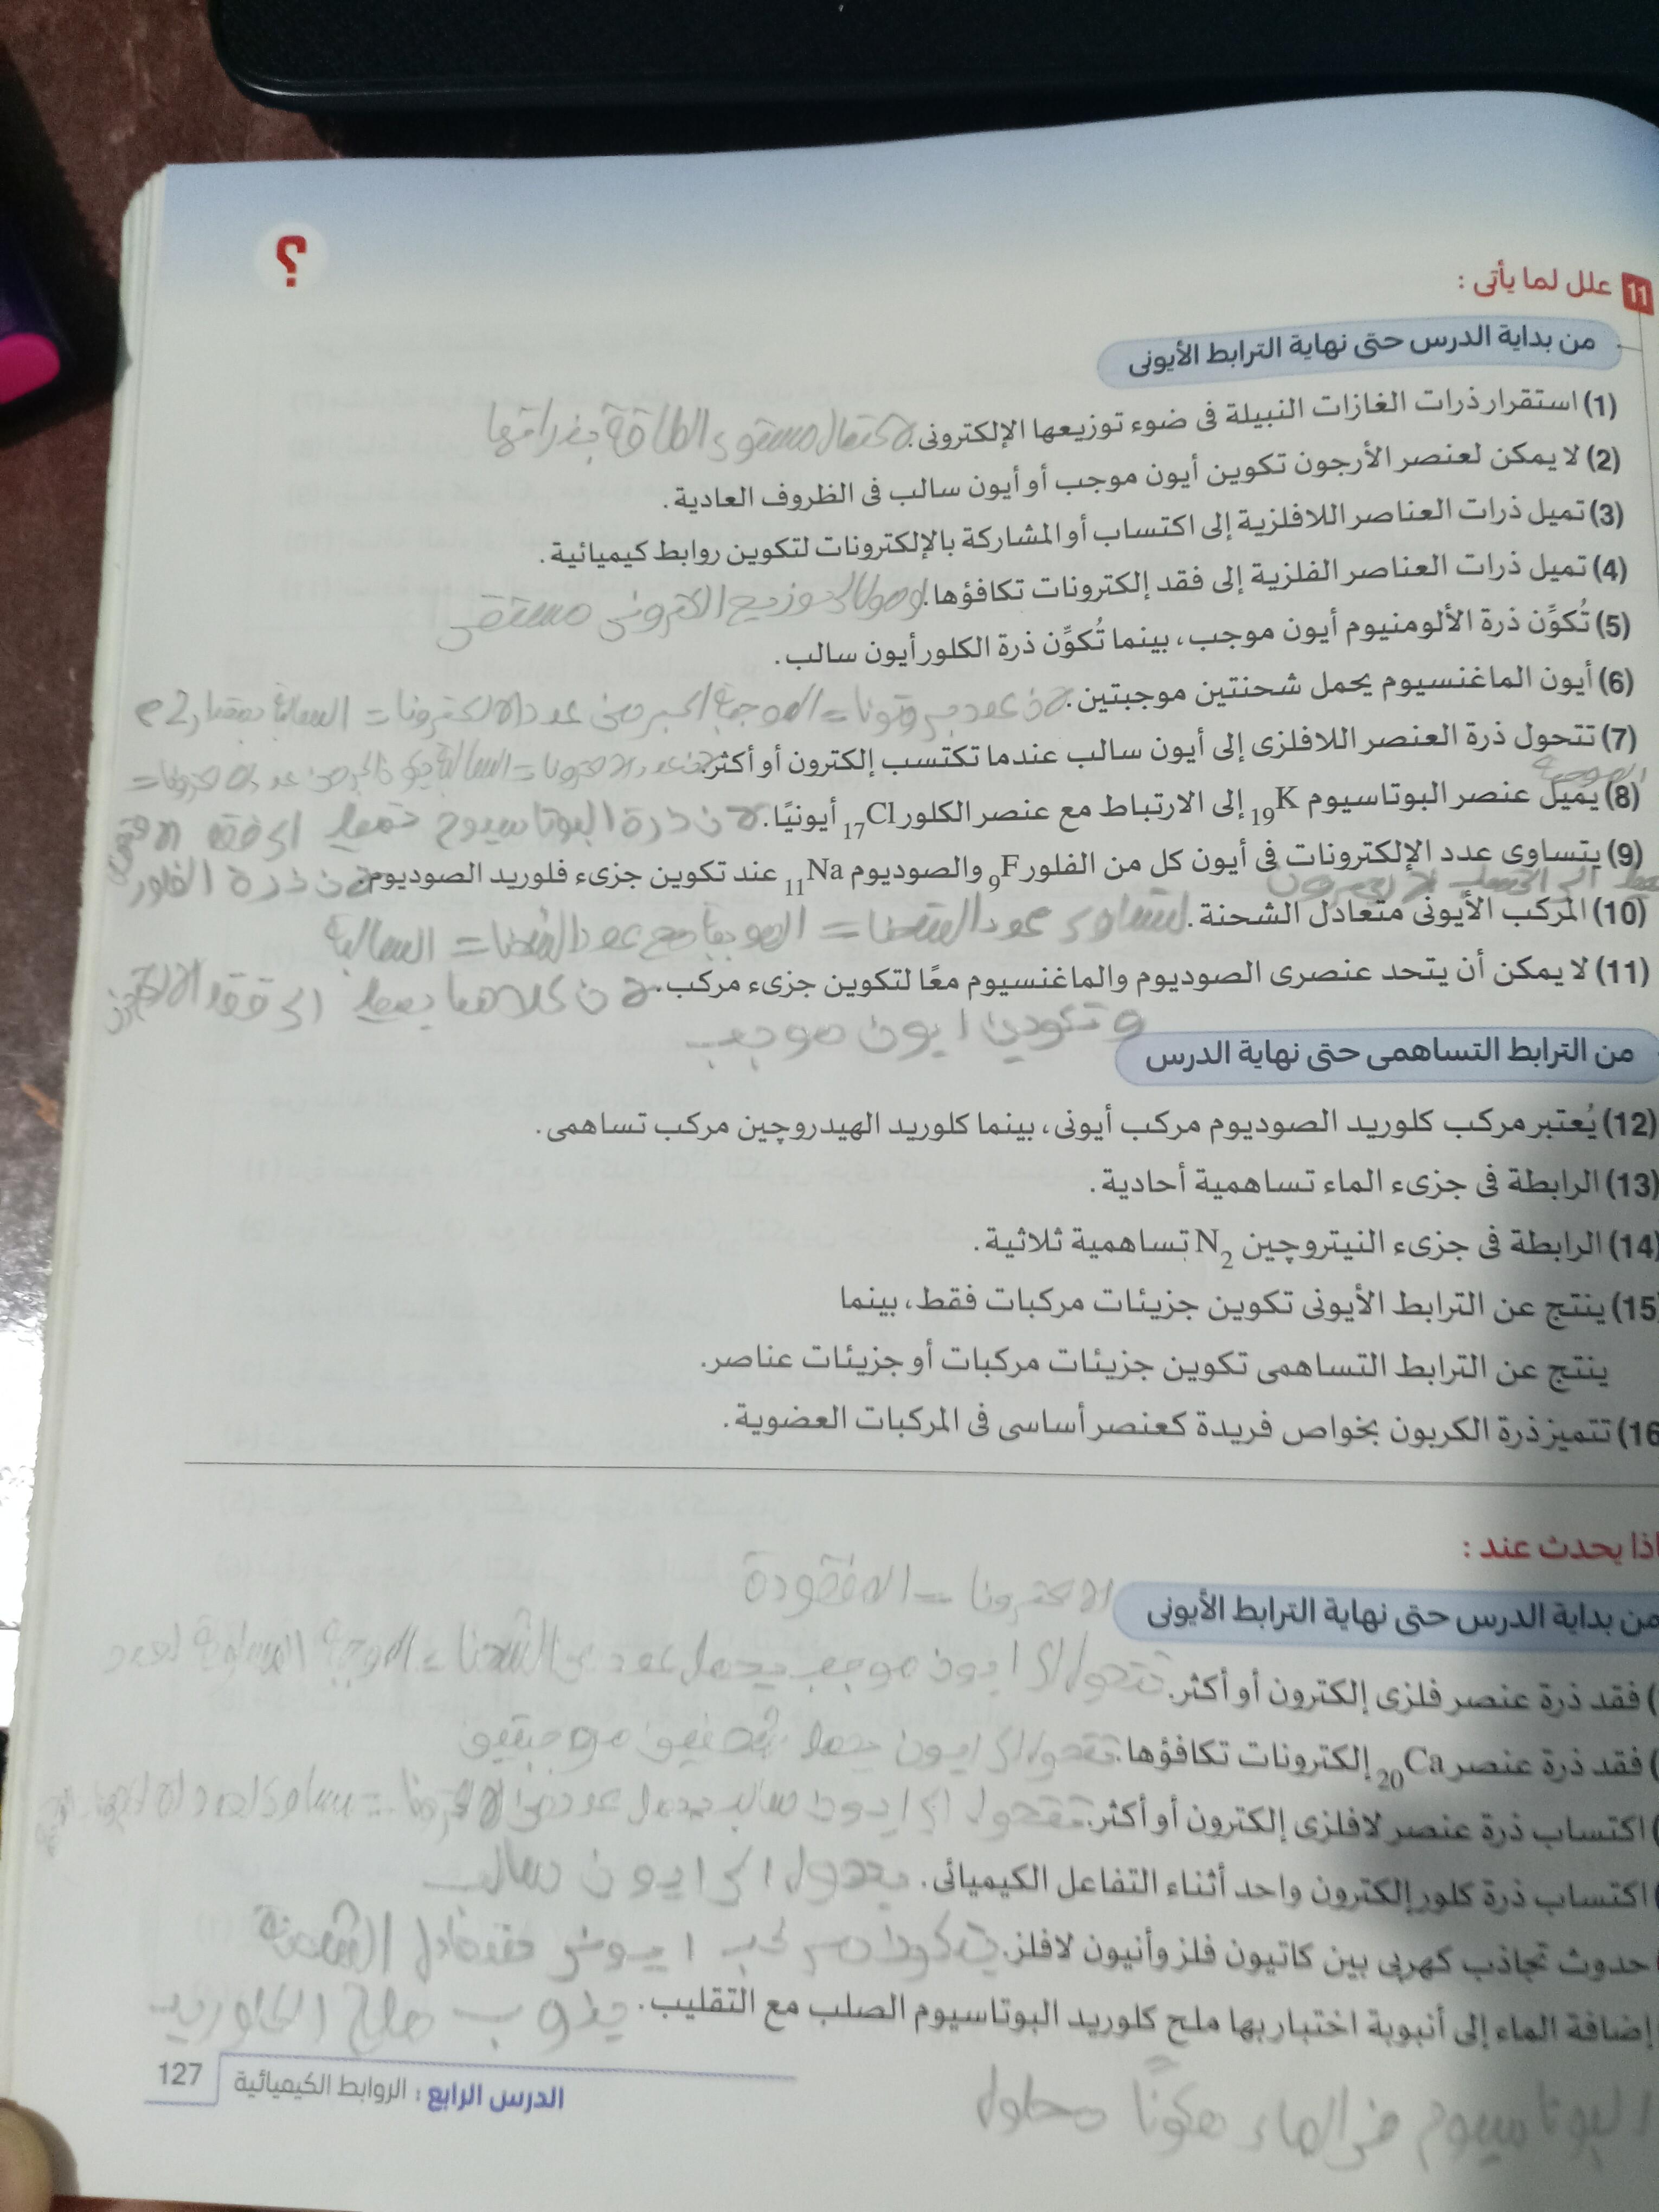 ؟
11 علل لما يأتى :
من بداية الدرس حتى نهاية الترابط الأيونى
(1) استقرار ذرات الغازات النبيلة فى ضوء توزيعها الإلكترونى. لاكتمال مستوى الطاقة بذراتها
(2) لا يمكن لعنصر الأرجون تكوين أيون موجب أو أيون سالب فى الظروف العادية.
(3) تميل ذرات العناصر اللافلزية إلى اكتساب أو المشاركة بالإلكترونات لتكوين روابط كيميائية.
(4) تميل ذرات العناصر الفلزية إلى فقد إلكترونات تكافؤها. توزيع الكترونى مستقر
(5) تُكوِّن ذرة الألومنيوم أيون موجب، بينما تُكوِّن ذرة الكلور أيون سالب.
(6) أيون الماغنسيوم يحمل شحنتين موجبتين. لان عدد
(7) تتحول ذرة العنصر اللافلزى إلى أيون سالب عندما تكتسب إلكترون أو أكثر.
الموجبة
(8) يميل عنصر البوتاسيوم ₁₉K إلى الارتباط مع عنصر الكلور ₁₇Cl أيونيًا. لان ذرة البوتاسيوم تميل الى فقد
(9) يتساوى عدد الإلكترونات فى أيون كل من الفلور ₉F والصوديوم ₁₁Na عند تكوين جزىء فلوريد الصوديوم. لان ذرة الفلور
(10) المركب الأيونى متعادل الشحنة. لتساوى عدد
(11) لا يمكن أن يتحد عنصرى الصوديوم والماغنسيوم معًا لتكوين جزىء مركب. لان كلاهما يميل الى فقد
وتكوين ايون موجب
من الترابط التساهمى حتى نهاية الدرس
(12) يُعتبر مركب كلوريد الصوديوم مركب أيونى، بينما كلوريد الهيدروچين مركب تساهمى.
(13) الرابطة فى جزىء الماء تساهمية أحادية.
(14) الرابطة فى جزىء النيتروچين N₂ تساهمية ثلاثية.
(15) ينتج عن الترابط الأيونى تكوين جزيئات مركبات فقط، بينما
ينتج عن الترابط التساهمى تكوين جزيئات مركبات أو جزيئات عناصر.
(16) تتميز ذرة الكربون بخواص فريدة كعنصر أساسى فى المركبات العضوية.
اذا يحدث عند :
من بداية الدرس حتى نهاية الترابط الأيونى
) فقد ذرة عنصر فلزى إلكترون أو أكثر. تتحول الى ايون موجب يحمل عدد من
) فقد ذرة عنصر ₂₀Ca إلكترونات تكافؤها. تتحول الى ايون يحمل شحنتين موجبتين
) اكتساب ذرة عنصر لافلزى إلكترون أو أكثر. تتحول الى ايون سالب يحمل عدد من
) اكتساب ذرة كلور إلكترون واحد أثناء التفاعل الكيميائى. يتحول الى ايون سالب
) حدوث تجاذب كهربى بين كاتيون فلز وأنيون لافلز. يتكون مركب ايونى متعادل الشحنة
إضافة الماء إلى أنبوبة اختبار بها ملح كلوريد البوتاسيوم الصلب مع التقليب. يذوب ملح الكلوريد
البوتاسيوم فى الماء مكونًا محلول
الدرس الرابع : الروابط الكيميائية 127